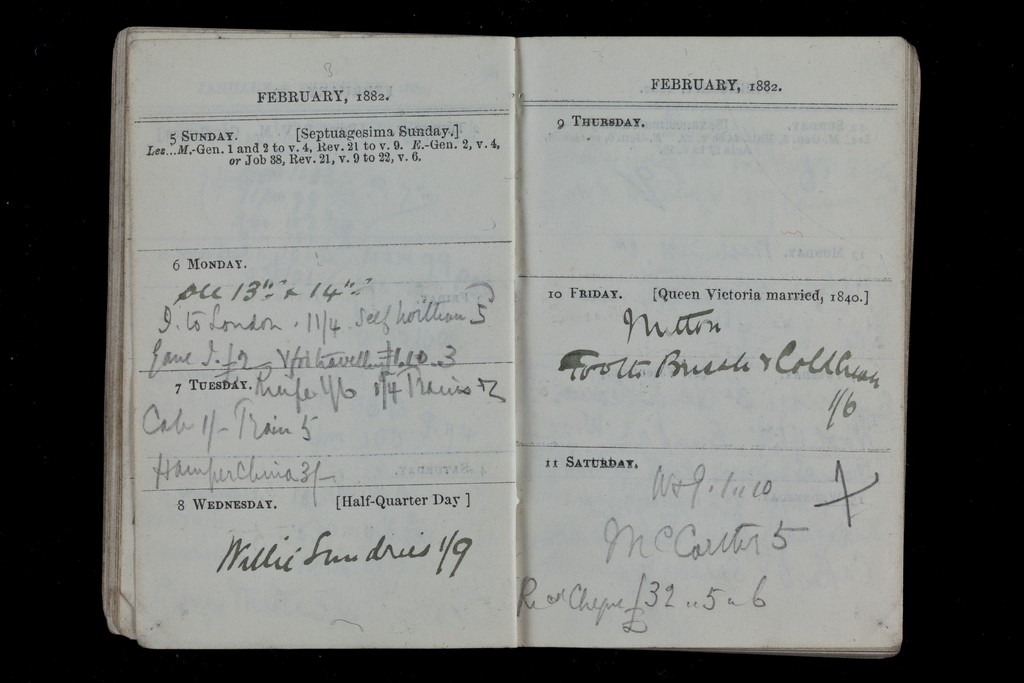 FEBRUARY, 1882.
5 SUNDAY. [Septuagesima Sunday.]
Les...M.-Gen. 1 and 2 to v. 4, Rev. 21 to v. 9. E.-Gen. 2, v. 4,
or Job 38, Rev. 21, v. 9 to 22, v. 6.
6 MONDAY.
13th & 14th
J. to London . 11/4 Self 5
Gave J. £2 3
7 TUESDAY. Knife 1/6 1/4 Trains
Cab 1/- Train 5
Hamper China 3/-
8 WEDNESDAY. [Half-Quarter Day ]
Willie Sundries 1/9
FEBRUARY, 1882.
9 THURSDAY.
10 FRIDAY. [Queen Victoria married, 1840.]
Mutton
Tooth Brush & Cold Cream
1/6
11 SATURDAY.
W & J. 1 " 10
McCarther 5
Recd Cheque £32 " 5 " 6